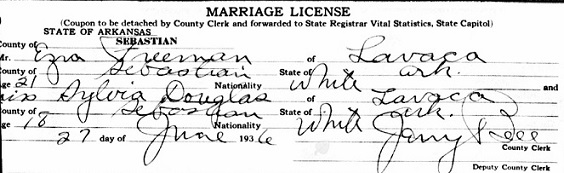 MARRIAGE LICENSE
(Coupon to be detached by County Clerk and forwarded to State Registrar Vital Statistics, State Capitol)
STATE OF ARKANSAS
County of SEBASTIAN
Mr. Ezra Freeman of Lavaca
County of Sebastian State of Ark.
age 21 Nationality White and
Miss Sylvia Douglas of Lavaca
County of Sebastian State of Ark.
age 18 Nationality White
27 day of June 1936 County Clerk
Deputy County Clerk